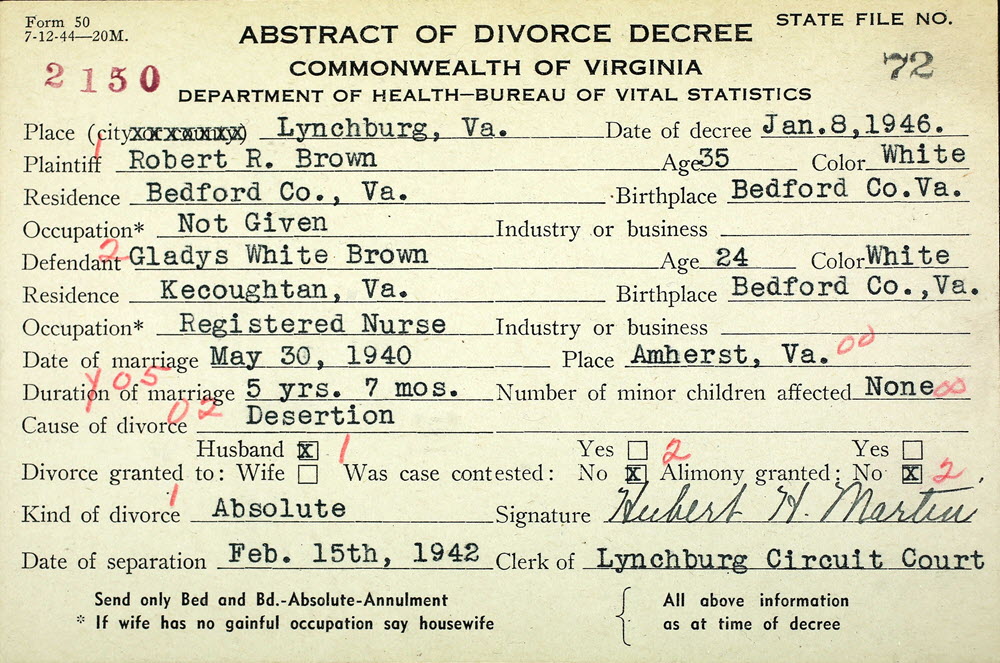 Form 50
7-12-44—20M.
STATE FILE NO.
ABSTRACT OF DIVORCE DECREE
2150
COMMONWEALTH OF VIRGINIA
72
DEPARTMENT OF HEALTH—BUREAU OF VITAL STATISTICS
Place (city xxxxxxxx) Lynchburg, Va. Date of decree Jan.8,1946.
1
Plaintiff Robert R. Brown Age 35 Color White
Residence Bedford Co., Va. Birthplace Bedford Co.Va.
Occupation* Not Given Industry or business
2
Defendant Gladys White Brown Age 24 Color White
Residence Kecoughtan, Va. Birthplace Bedford Co.,Va.
Occupation* Registered Nurse Industry or business
Date of marriage May 30, 1940 Place Amherst, Va. 00
Y05
Duration of marriage 5 yrs. 7 mos. Number of minor children affected None 00
Cause of divorce 02 Desertion
Husband X 1 Yes 2 Yes
Divorce granted to: Wife Was case contested: No X Alimony granted: No X 2
1
Kind of divorce Absolute Signature Hubert H. Martin
Date of separation Feb. 15th, 1942 Clerk of Lynchburg Circuit Court
Send only Bed and Bd.-Absolute-Annulment All above information
* If wife has no gainful occupation say housewife as at time of decree